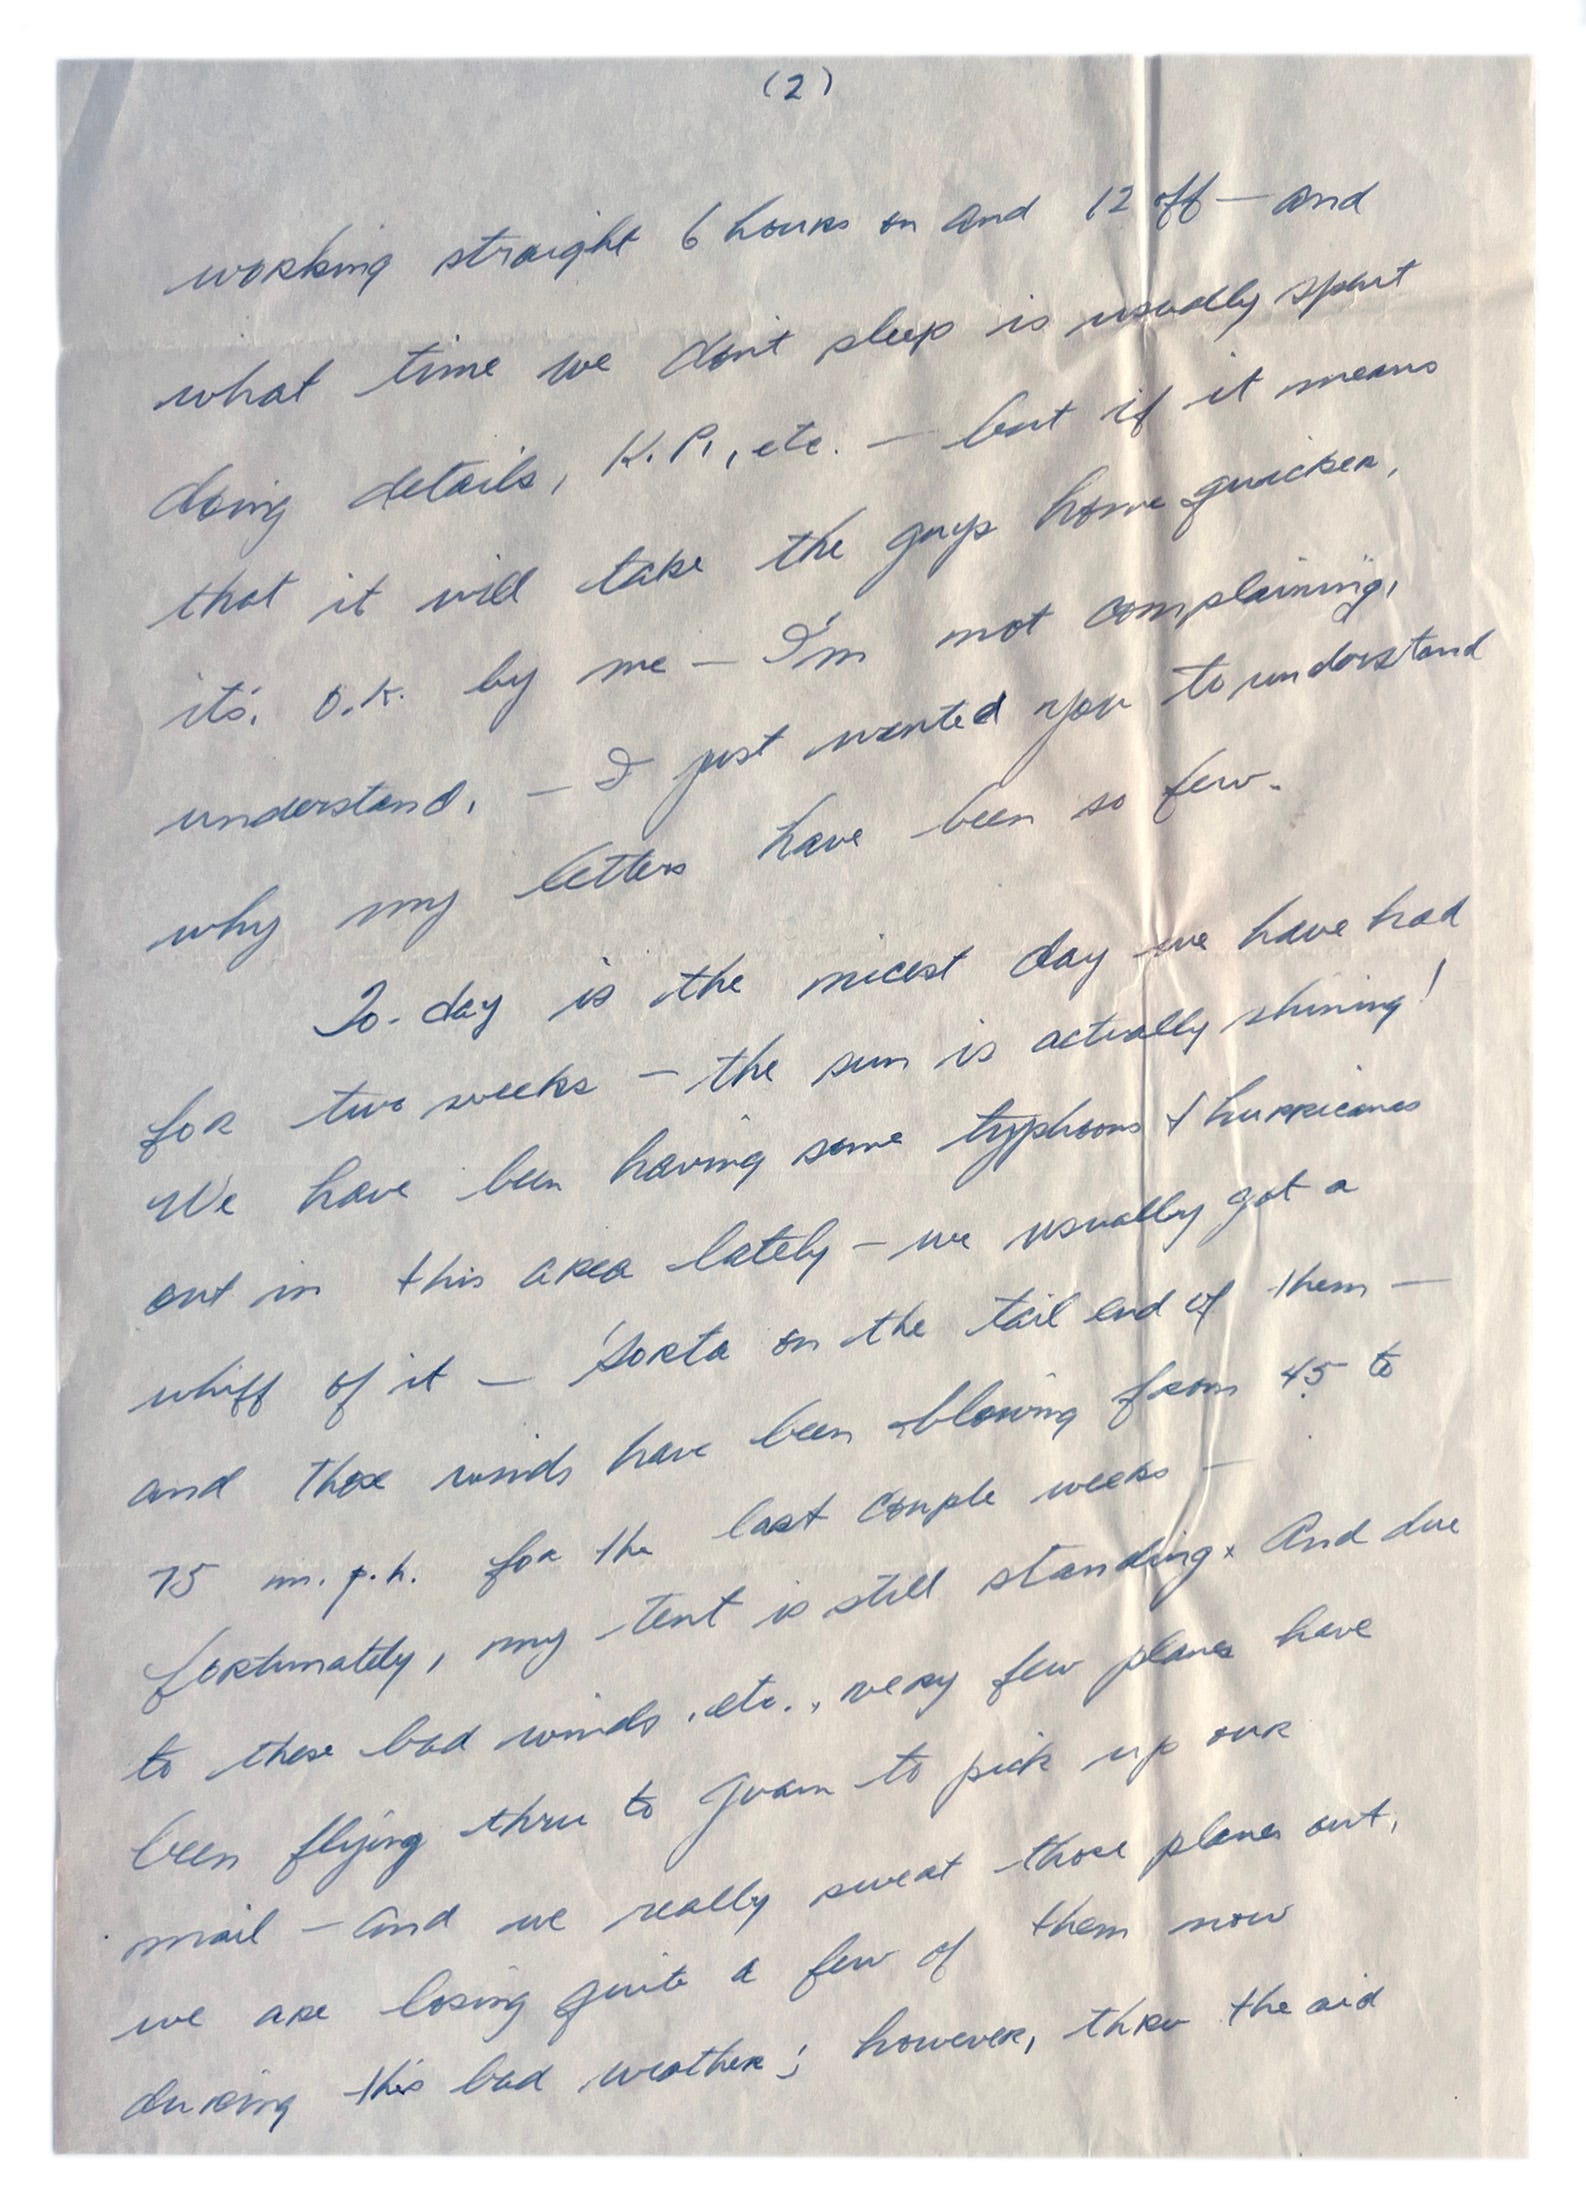 (2)
working straight 6 hours on and 12 off — and
what time we don't sleep is usually spent
doing details, K.P., etc. — but if it means
that it will take the guys home quicker,
its. O.K. by me — I'm not complaining,
understand. — I just wanted you to understand
why my letters have been so few.
To-day is the nicest day we have had
for two weeks — the sun is actually shining!
We have been having some typhoons & hurricanes
out in this area lately — we usually got a
whiff of it — 'sorta on the tail end of them —
and those winds have been blowing from 45 to
75 m.p.h. for the last couple weeks —
fortunately, my tent is still standing. And due
to these bad winds, etc., very few planes have
been flying thru to Guam to pick up our
mail — and we really sweat those planes out,
we are losing quite a few of them now
during this bad weather; however, thru the aid